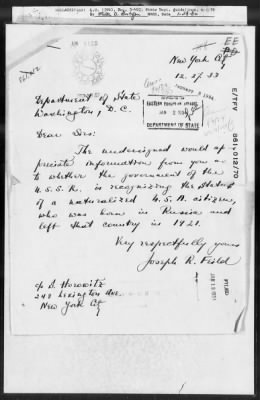 New York City
12.27.33
Department of State
Washington, D.C.
Dear Sirs:
The undersigned would ap-
preciate information from you as
to whether the government of the
U.S.S.R. is recognizing the status
of a naturalized U.S.A. citizen,
who was born in Russia and
left that country in 1921.
Very respectfully yours
Joseph R. Feild
c/o D. Horowitz
249 Lexington Ave.
New York City
EASTERN EUROPEAN AFFAIRS
DEPARTMENT OF STATE
861.012/70
FILED